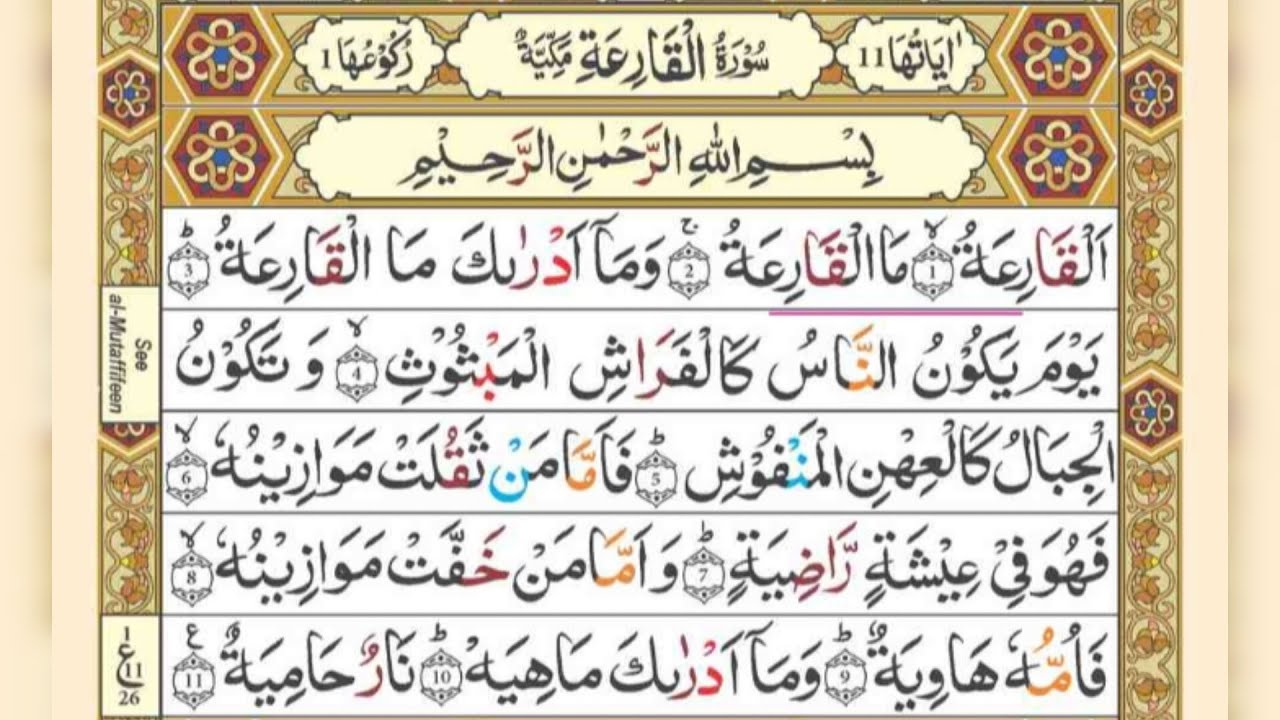 اٰيَاتُهَا 11 سُوْرَةُ الْقَارِعَةِ مَكِّيَّةٌ رُكُوْعُهَا 1
بِسْمِ اللهِ الرَّحْمٰنِ الرَّحِيْمِ
اَلْقَارِعَةُ ۙ 1 مَا الْقَارِعَةُ ۚ 2 وَمَآ اَدْرٰىكَ مَا الْقَارِعَةُ ؕ 3
يَوْمَ يَكُوْنُ النَّاسُ كَالْفَرَاشِ الْمَبْثُوْثِ ۙ 4 وَ تَكُوْنُ
الْجِبَالُ كَالْعِهْنِ الْمَنْفُوْشِ ؕ 5 فَاَمَّا مَنْ ثَقُلَتْ مَوَازِيْنُهٗ ۙ 6
فَهُوَ فِيْ عِيْشَةٍ رَّاضِيَةٍ ؕ 7 وَ اَمَّا مَنْ خَفَّتْ مَوَازِيْنُهٗ ۙ 8
فَاُمُّهٗ هَاوِيَةٌ ؕ 9 وَمَآ اَدْرٰىكَ مَا هِيَهْ ؕ 10 نَارٌ حَامِيَةٌ ۧ 11
See
al-Mutaffifeen
1
ع 11
26